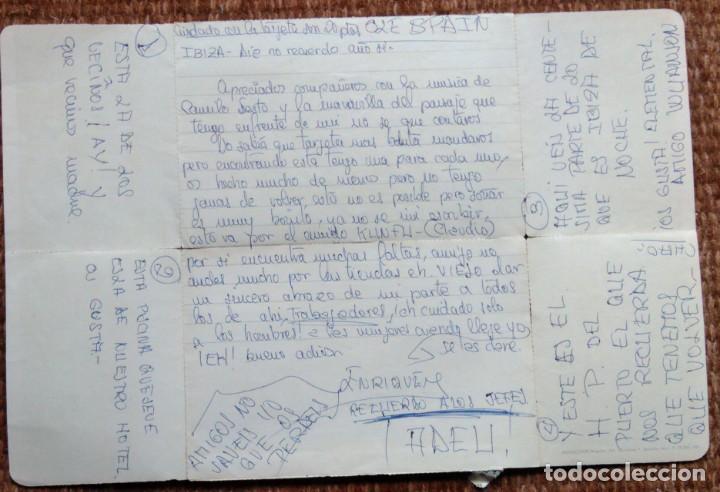 Cuidado con la tarjeta son 20 ptas OLE SPAIN
IBIZA - Die no recuerdo año si -
Apreciados compañeros con la musica de
Camilo Sesto y la maravilla del paisaje que
tengo enfrente de mi no se que contaros
No sabia que tarjeta mas bonita mandaros
pero encontrando esta tengo una para cada uno,
os hecho mucho de menos pero no tengo
ganas de volver, esto no es posible pero soñar
es muy bonito, ya no se ni escribir,
esto va por el amido KUNFU - (Claudio)
por si encuentra muchas faltas, amijo no
andes mucho por las tiendas eh. VIEJO dar
un sincero abrazo de mi parte a todos
los de ahi, Trabajadores, ¡ch cuidado solo
a los hombres! a las mujeres cuando llege yo
se les dare.
¡EH! bueno adios
ENRIQUE
RECUERDO A LOS JEFES
¡ADEU!
AMIGOS NO
SAVEIS LO
QUE OS
PERDEIS
1
ESTA ES LA DE LOS
VECINOS ¡AY! Y
que vecinos madre
2
ESTA PISCINA QUE SE VE
ES LA DE NUESTRO HOTEL
OS GUSTA -
3
AQUI VEIS LA CENTE-
SIMA PARTE DE LO
QUE ES IBIZA DE
NOCHE.
¡OS GUSTA! ELEMENTAL
AMIGO WUANSON
4
Y ESTE ES EL
H. P. DEL
PUERTO EL QUE
NOS RECUERDA
QUE TENEMOS
QUE VOLVER -
todocoleccion